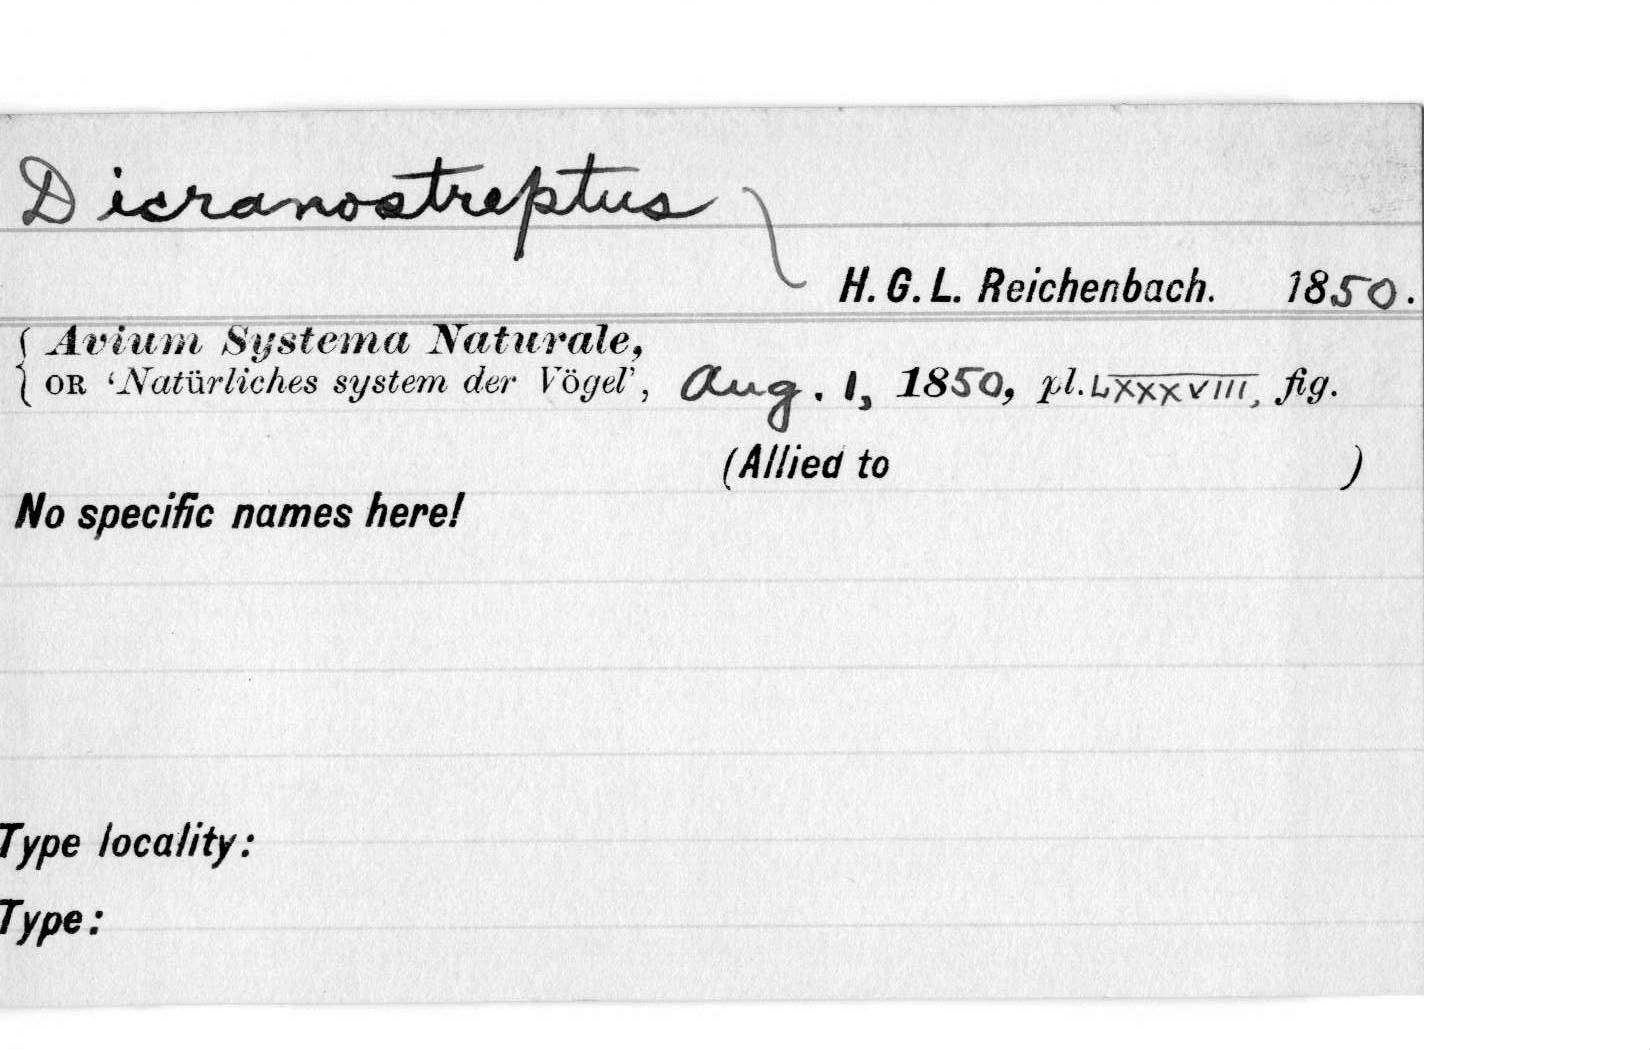 Dicranostreptus
H. G. L. Reichenbach. 1850.
Avium Systema Naturale,
OR 'Natürliches system der Vögel', Aug. 1, 1850, pl. LXXXVIII, fig.
(Allied to )
No specific names here!
Type locality:
Type: